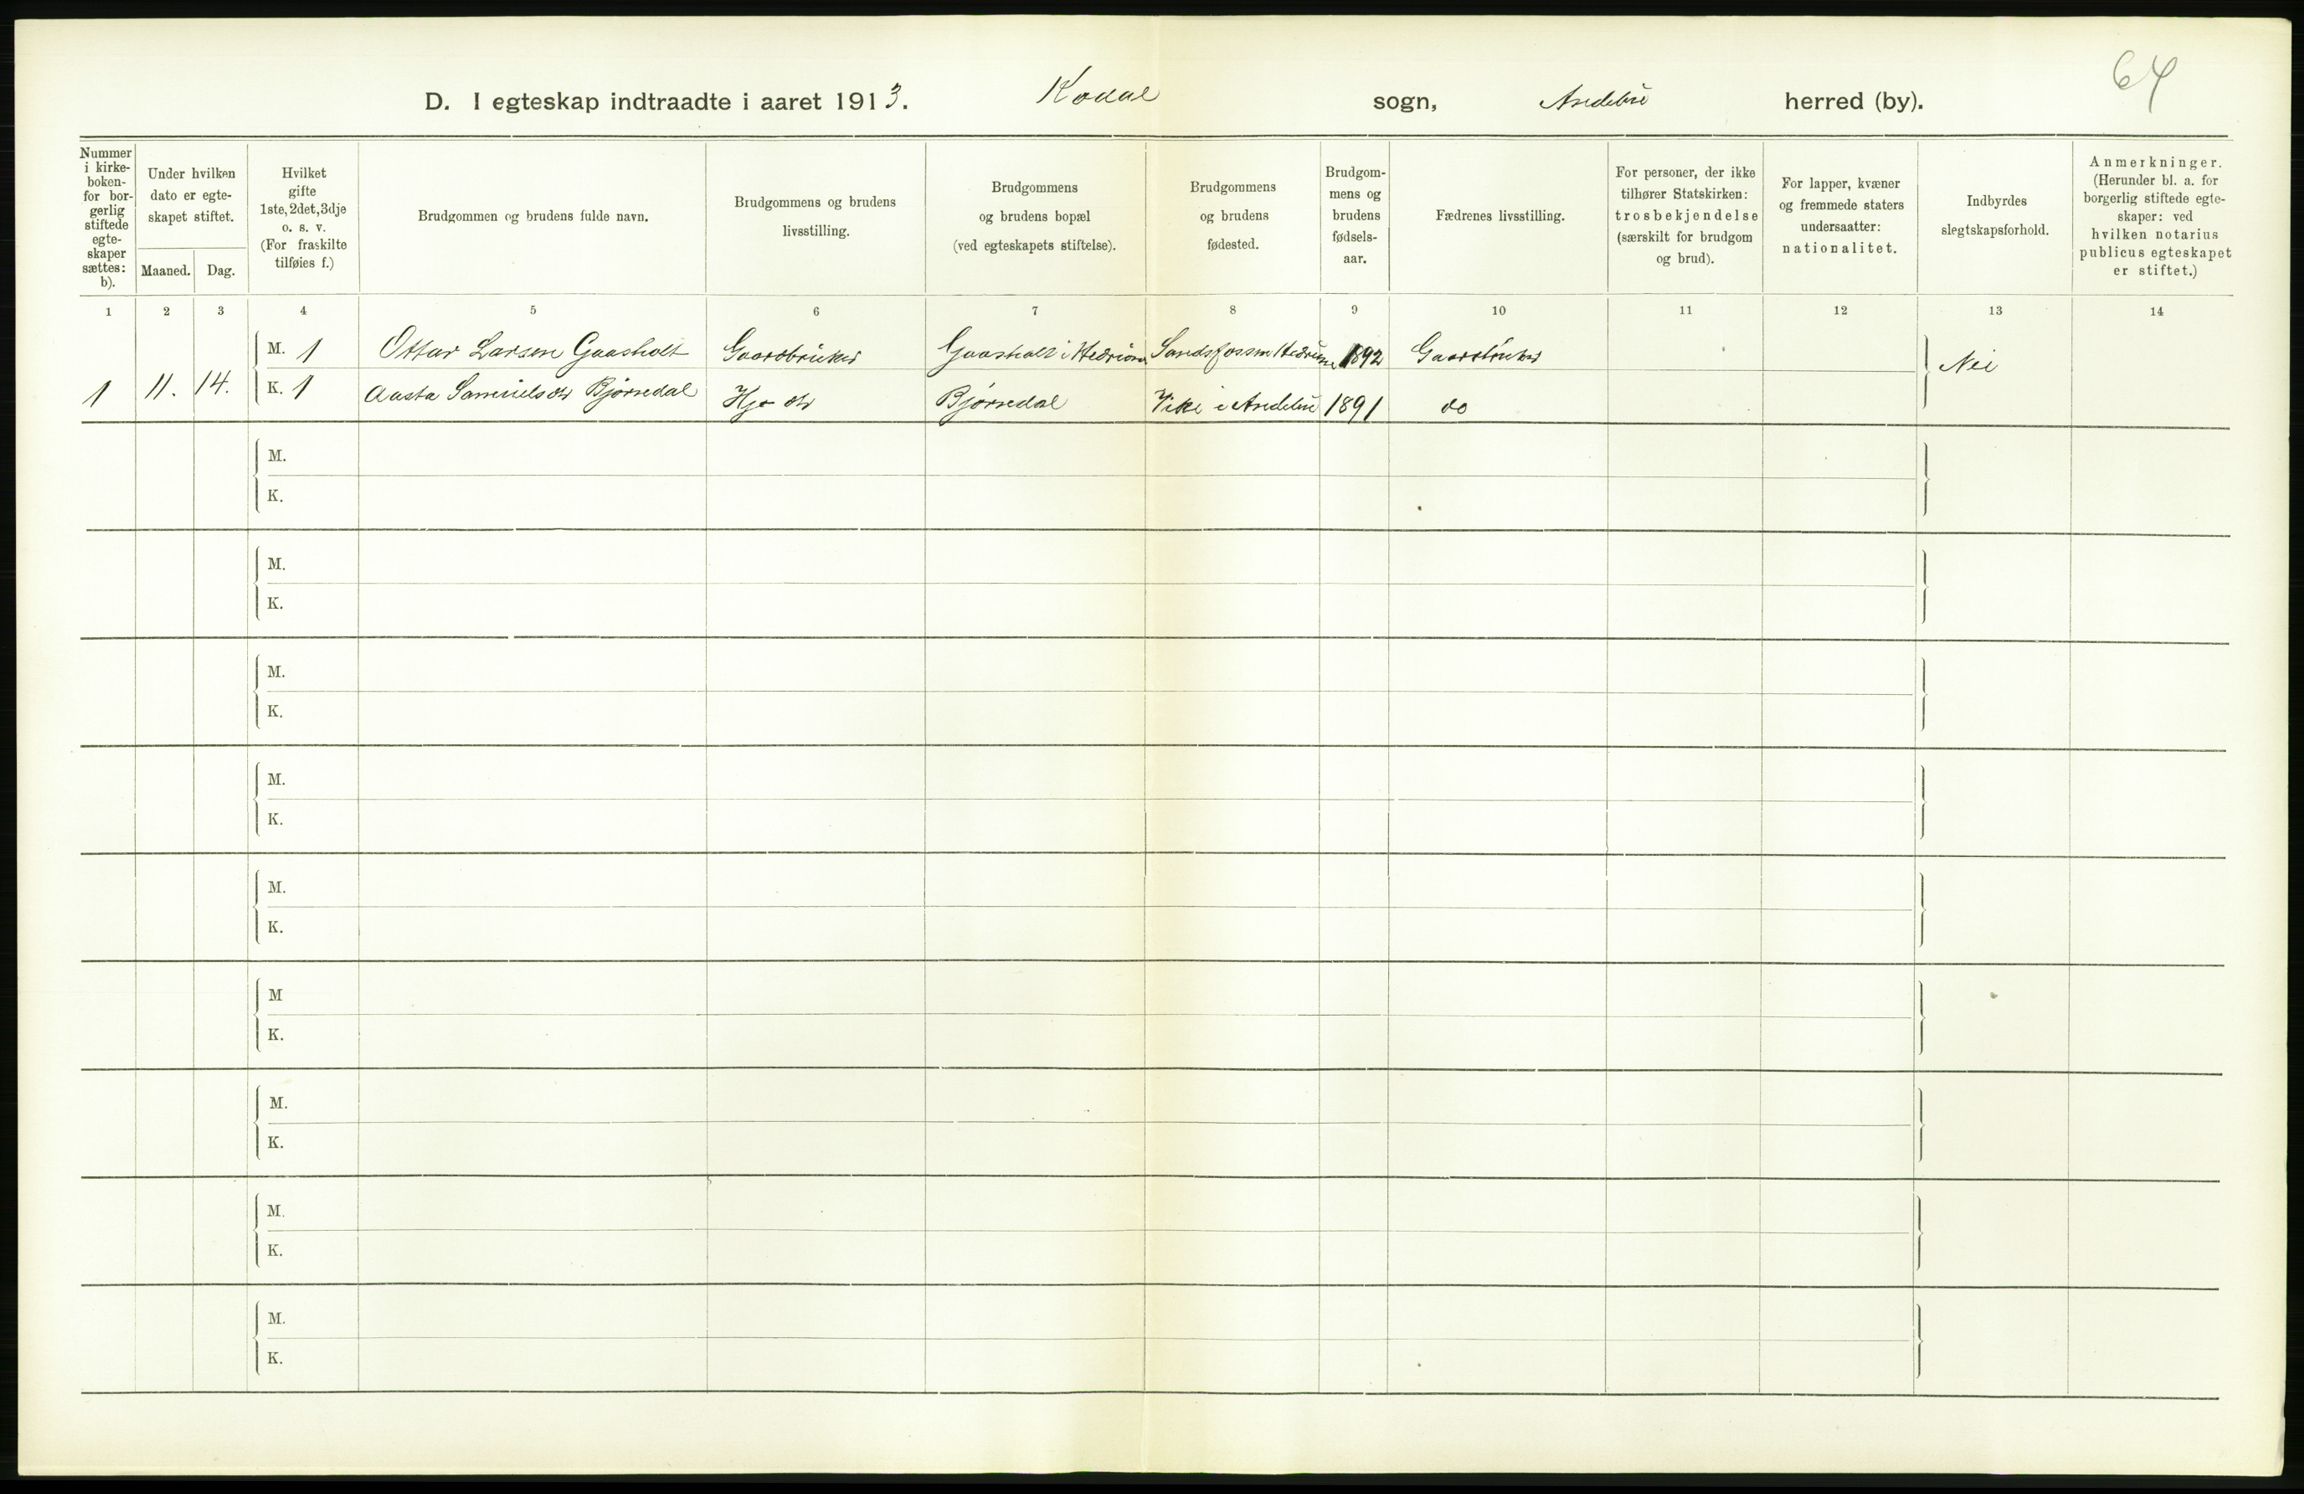 64
D. I egteskap indtraadte i aaret 1913. Kodal sogn, Andebu herred (by).
Nummer i kirkeboken- for borgerlig stiftede egteskaper sættes: b).
Under hvilken dato er egteskapet stiftet.
Maaned. Dag.
Hvilket gifte 1ste, 2det, 3dje o. s. v. (For fraskilte tilføies f.)
Brudgommen og brudens fulde navn.
Brudgommens og brudens livsstilling.
Brudgommens og brudens bopæl (ved egteskapets stiftelse).
Brudgommens og brudens fødested.
Brudgommens og brudens fødselsaar.
Fædrenes livsstilling.
For personer, der ikke tilhører Statskirken: trosbekjendelse (særskilt for brudgom og brud).
For lapper, kvæner og fremmede staters undersaatter: nationalitet.
Indbyrdes slegtskapsforhold.
Anmerkninger. (Herunder bl. a. for borgerlig stiftede egteskaper: ved hvilken notarius publicus egteskapet er stiftet.)
1 2 3 4 5 6 7 8 9 10 11 12 13 14
M. 1 Ottar Larsen Gaasholt Gaardbruker Gaasholt i Hedrum Sandsfossen Hedrum 1892 Gaardbruker
1 11. 14. K. 1 Aasta Samuelsdtr Bjørndal Hj dtr Bjørndal i Andebu 1891 do Nei
M.
K.
M.
K.
M.
K.
M.
K.
M.
K.
M
K.
M.
K.
M.
K.
M.
K.